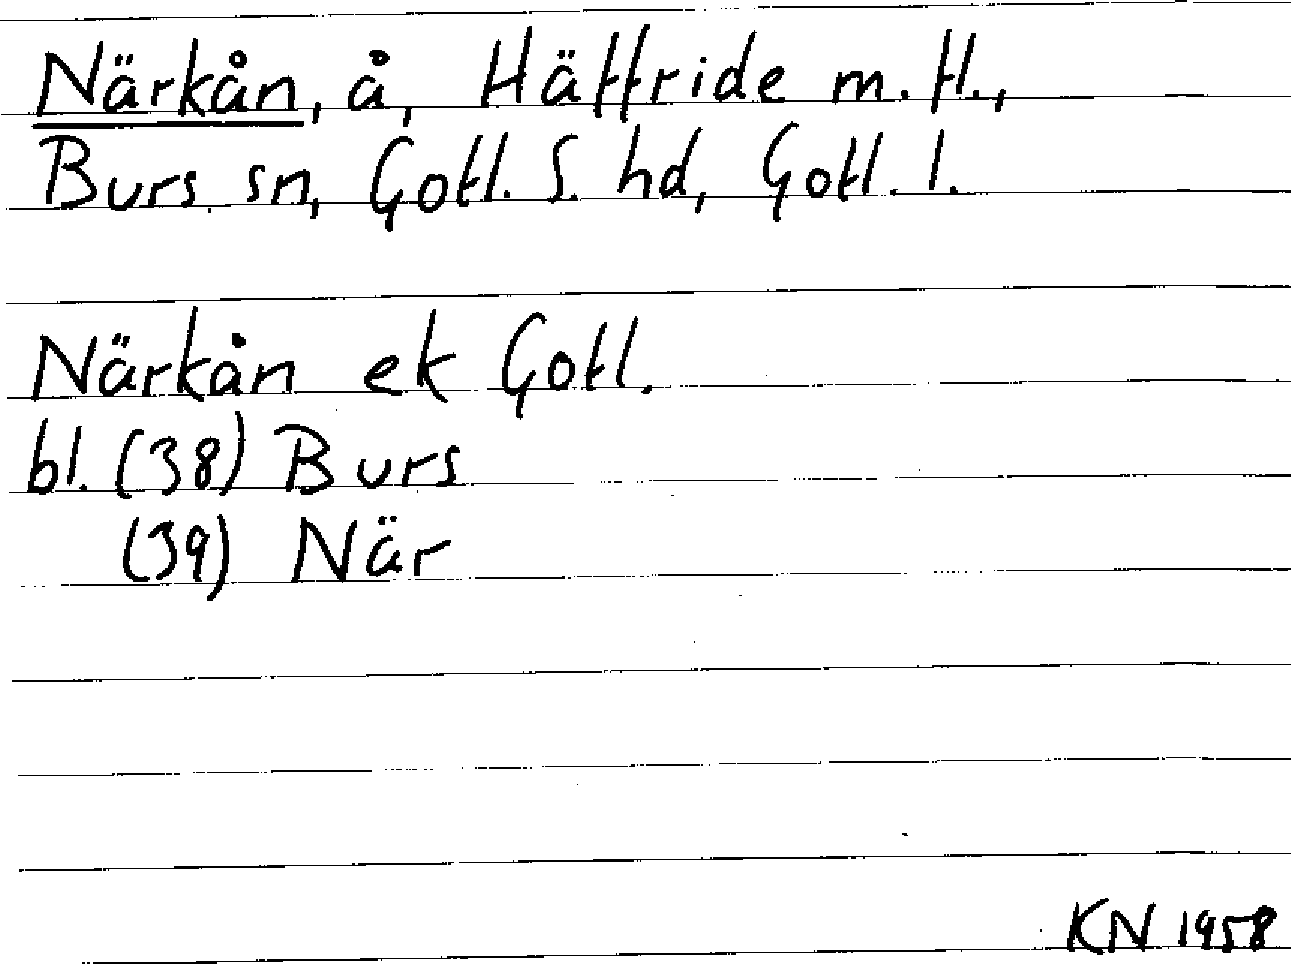 Närkån, å, Häffride m.fl.,
Burs sn, Gotl. S. hd, Gotl. l.
Närkån ek Gotl.
bl. (38) Burs
(39) När
KN 1958